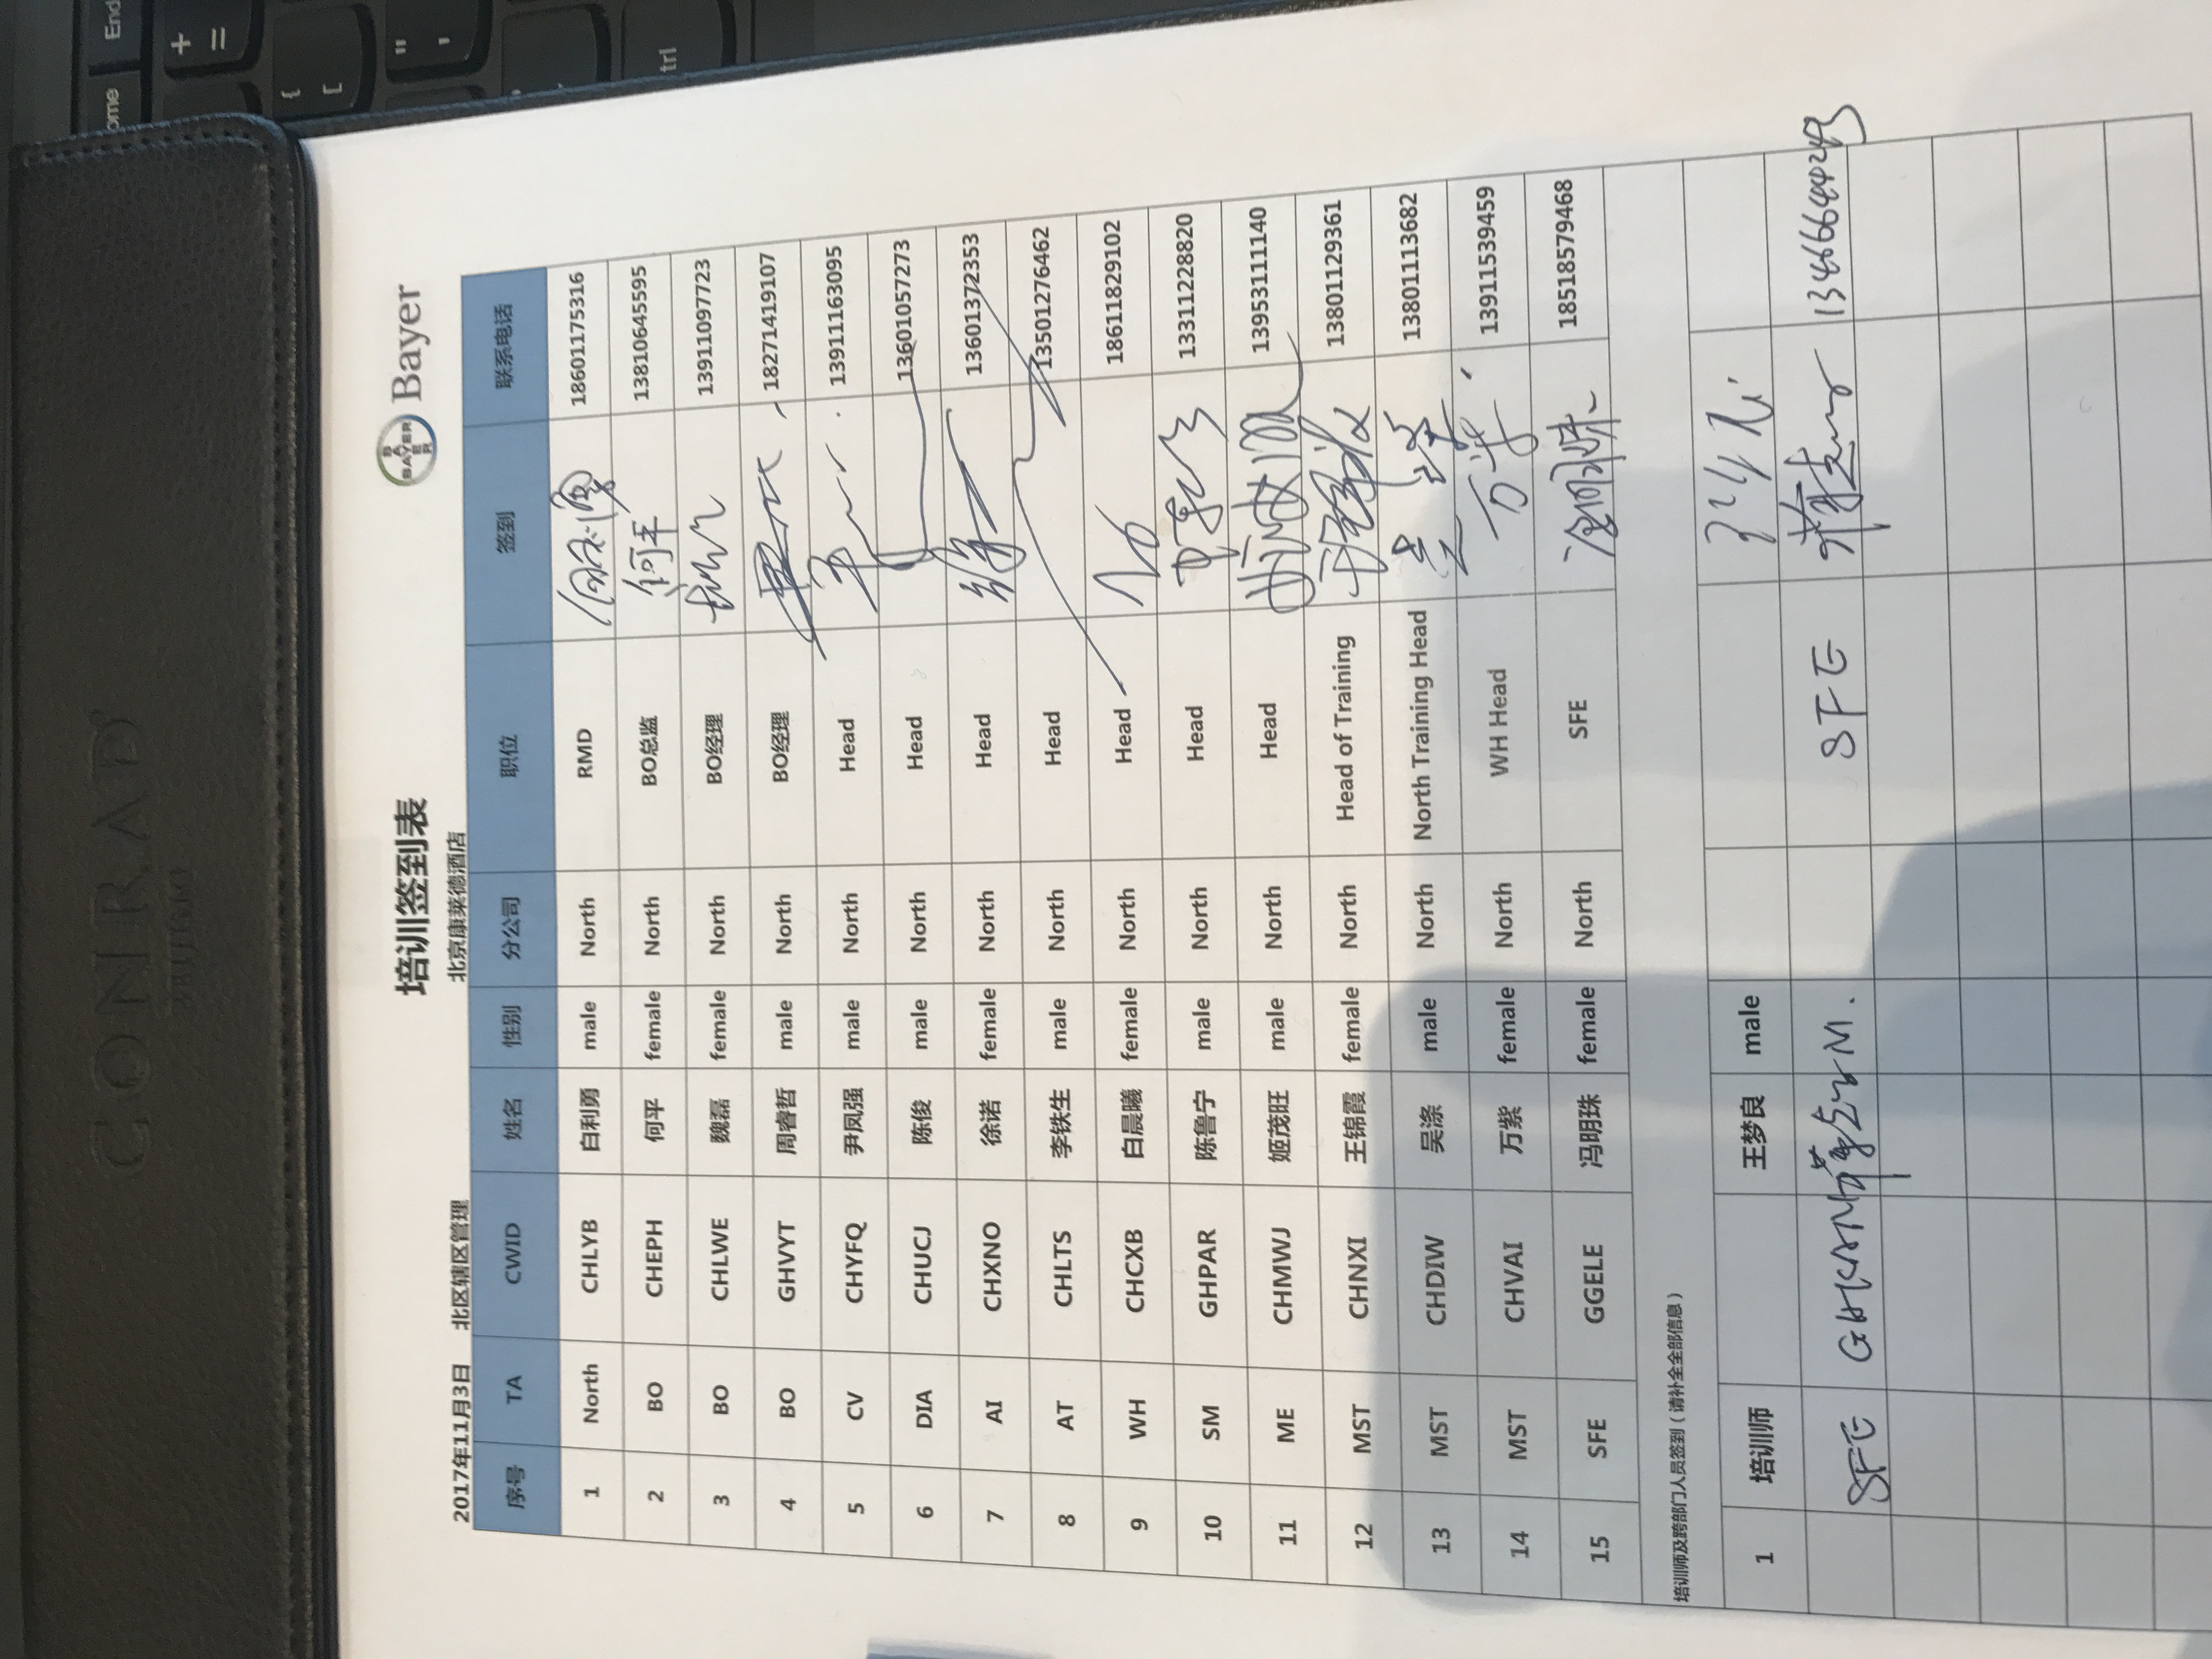 CONRAD
BEIJING
ome
End
+
=
{
[
"
'
trl
培训签到表
BAYER
BAYER
Bayer
2017年11月3日 北区辖区管理 北京康莱德酒店
序号 TA CWID 姓名 性别 分公司 职位 签到 联系电话
1 North CHLYB 白利勇 male North RMD 白利勇 18601175316
2 BO CHEPH 何平 female North BO总监 何平 13810645595
3 BO CHLWE 魏磊 female North BO经理 13911097723
4 BO GHVYT 周睿哲 male North BO经理 18271419107
5 CV CHYFQ 尹凤强 male North Head 13911163095
6 DIA CHUCJ 陈俊 male North Head 13601057273
7 AI CHXNO 徐诺 female North Head 13601372353
8 AT CHLTS 李铁生 male North Head 13501276462
9 WH CHCXB 白晨曦 female North Head 18611829102
10 SM GHPAR 陈鲁宁 male North Head 13311228820
11 ME CHMWJ 姬茂旺 male North Head 13953111140
12 MST CHNXI 王锦霞 female North Head of Training 王锦霞 13801129361
13 MST CHDIW 吴涤 male North North Training Head 吴涤 13801113682
14 MST CHVAI 万紫 female North WH Head 万紫 13911539459
15 SFE GGELE 冯明珠 female North SFE 冯明珠 18518579468
培训师及跨部门人员签到（请补全全部信息）
1 培训师 王梦良 male
SFE GHKAM M. SFE